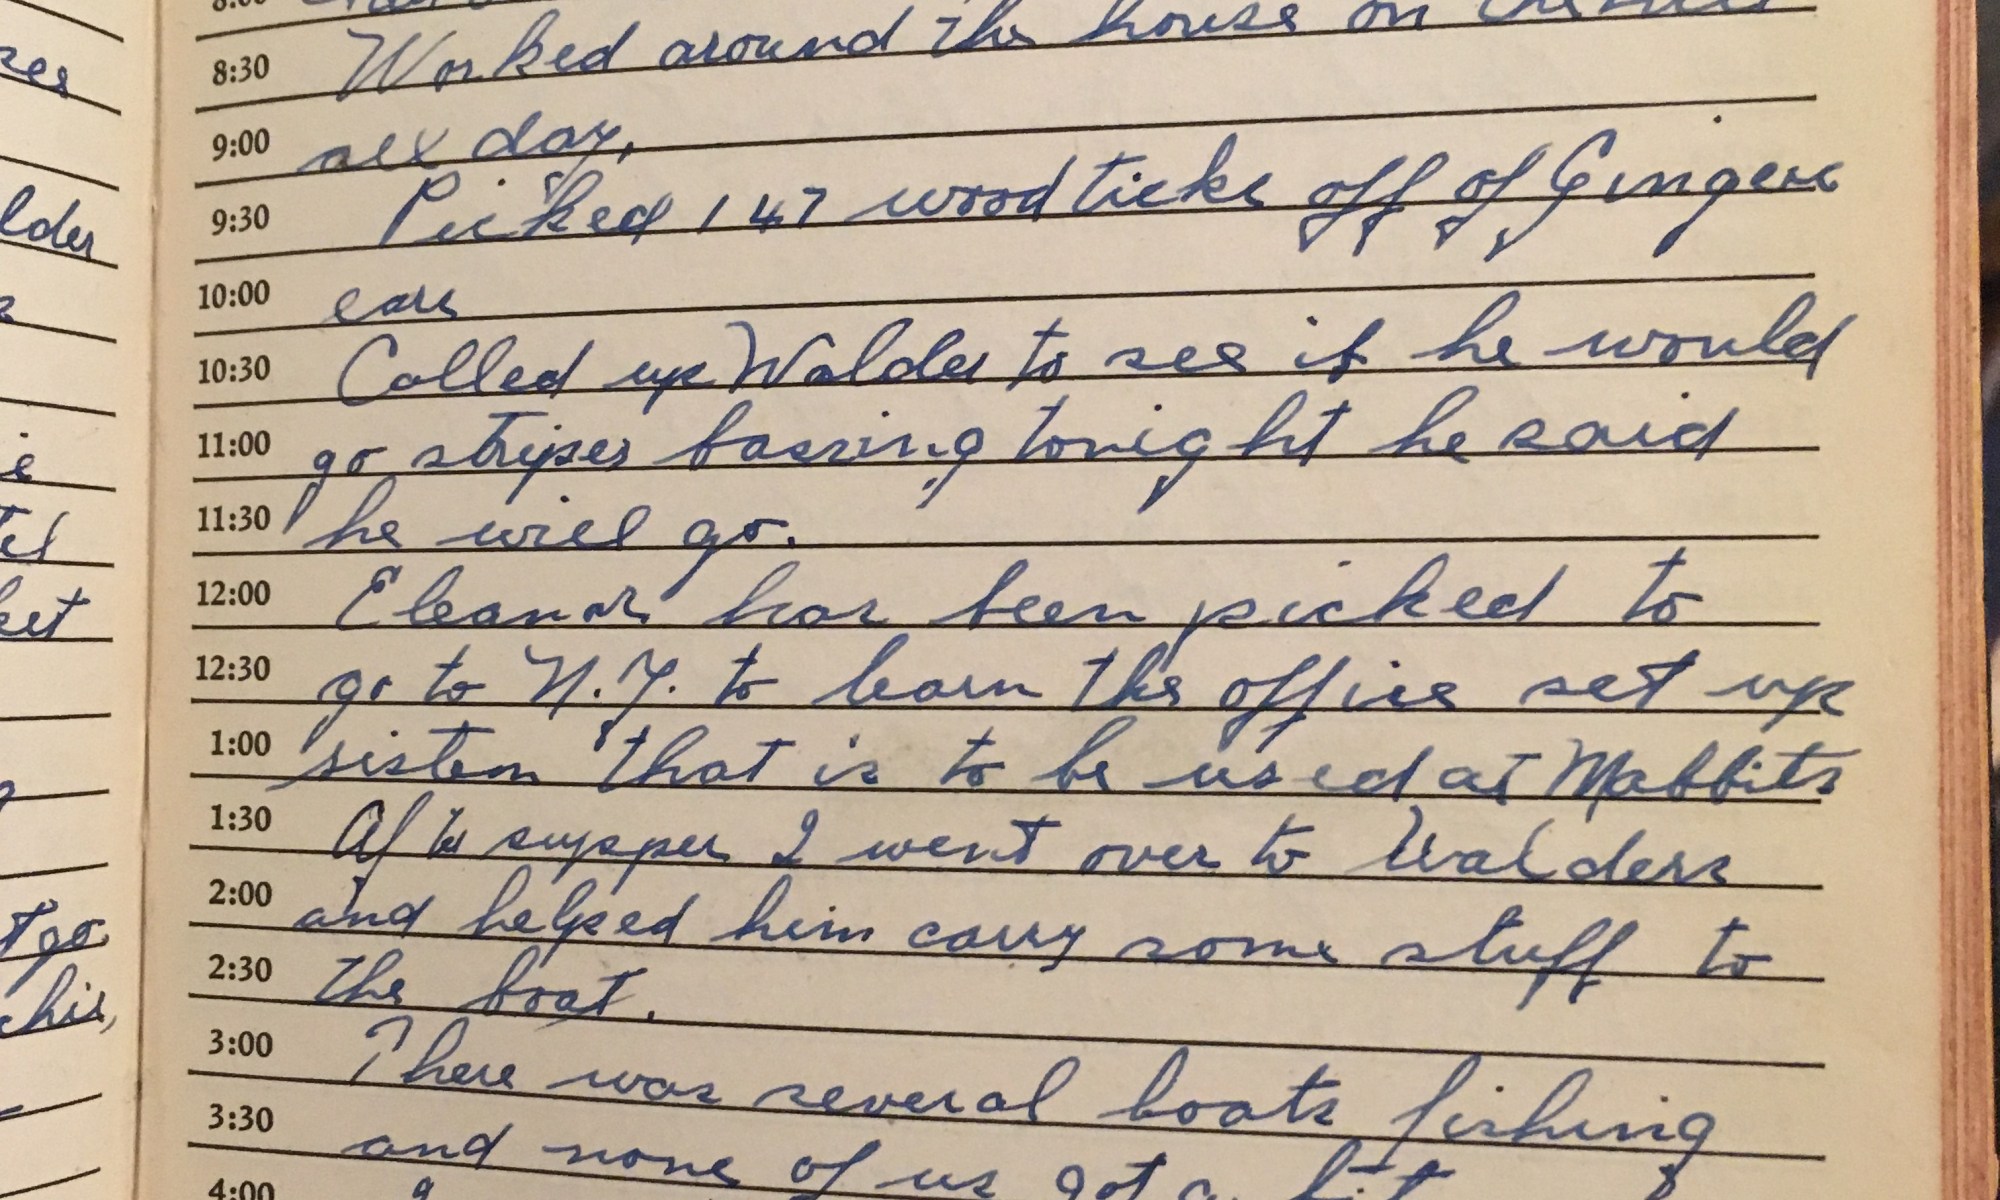 zes
lder
ie
tel
eet
t go
his,
8:00
8:30 Worked around the house on
9:00 all day.
9:30 Picked 147 wood ticks off of Gingers
10:00 ears
10:30 Called up Walder to see if he would
11:00 go striper bassing tonight he said
11:30 he will go.
12:00 Eleanor has been picked to
12:30 go to N.Y. to learn the office set up
1:00 sistem that is to be used at Mabbits
1:30 After supper I went over to Walders
2:00 and helped him carry some stuff to
2:30 the boat.
3:00 There was several boats fishing
3:30 and none of us got a bit
4:00